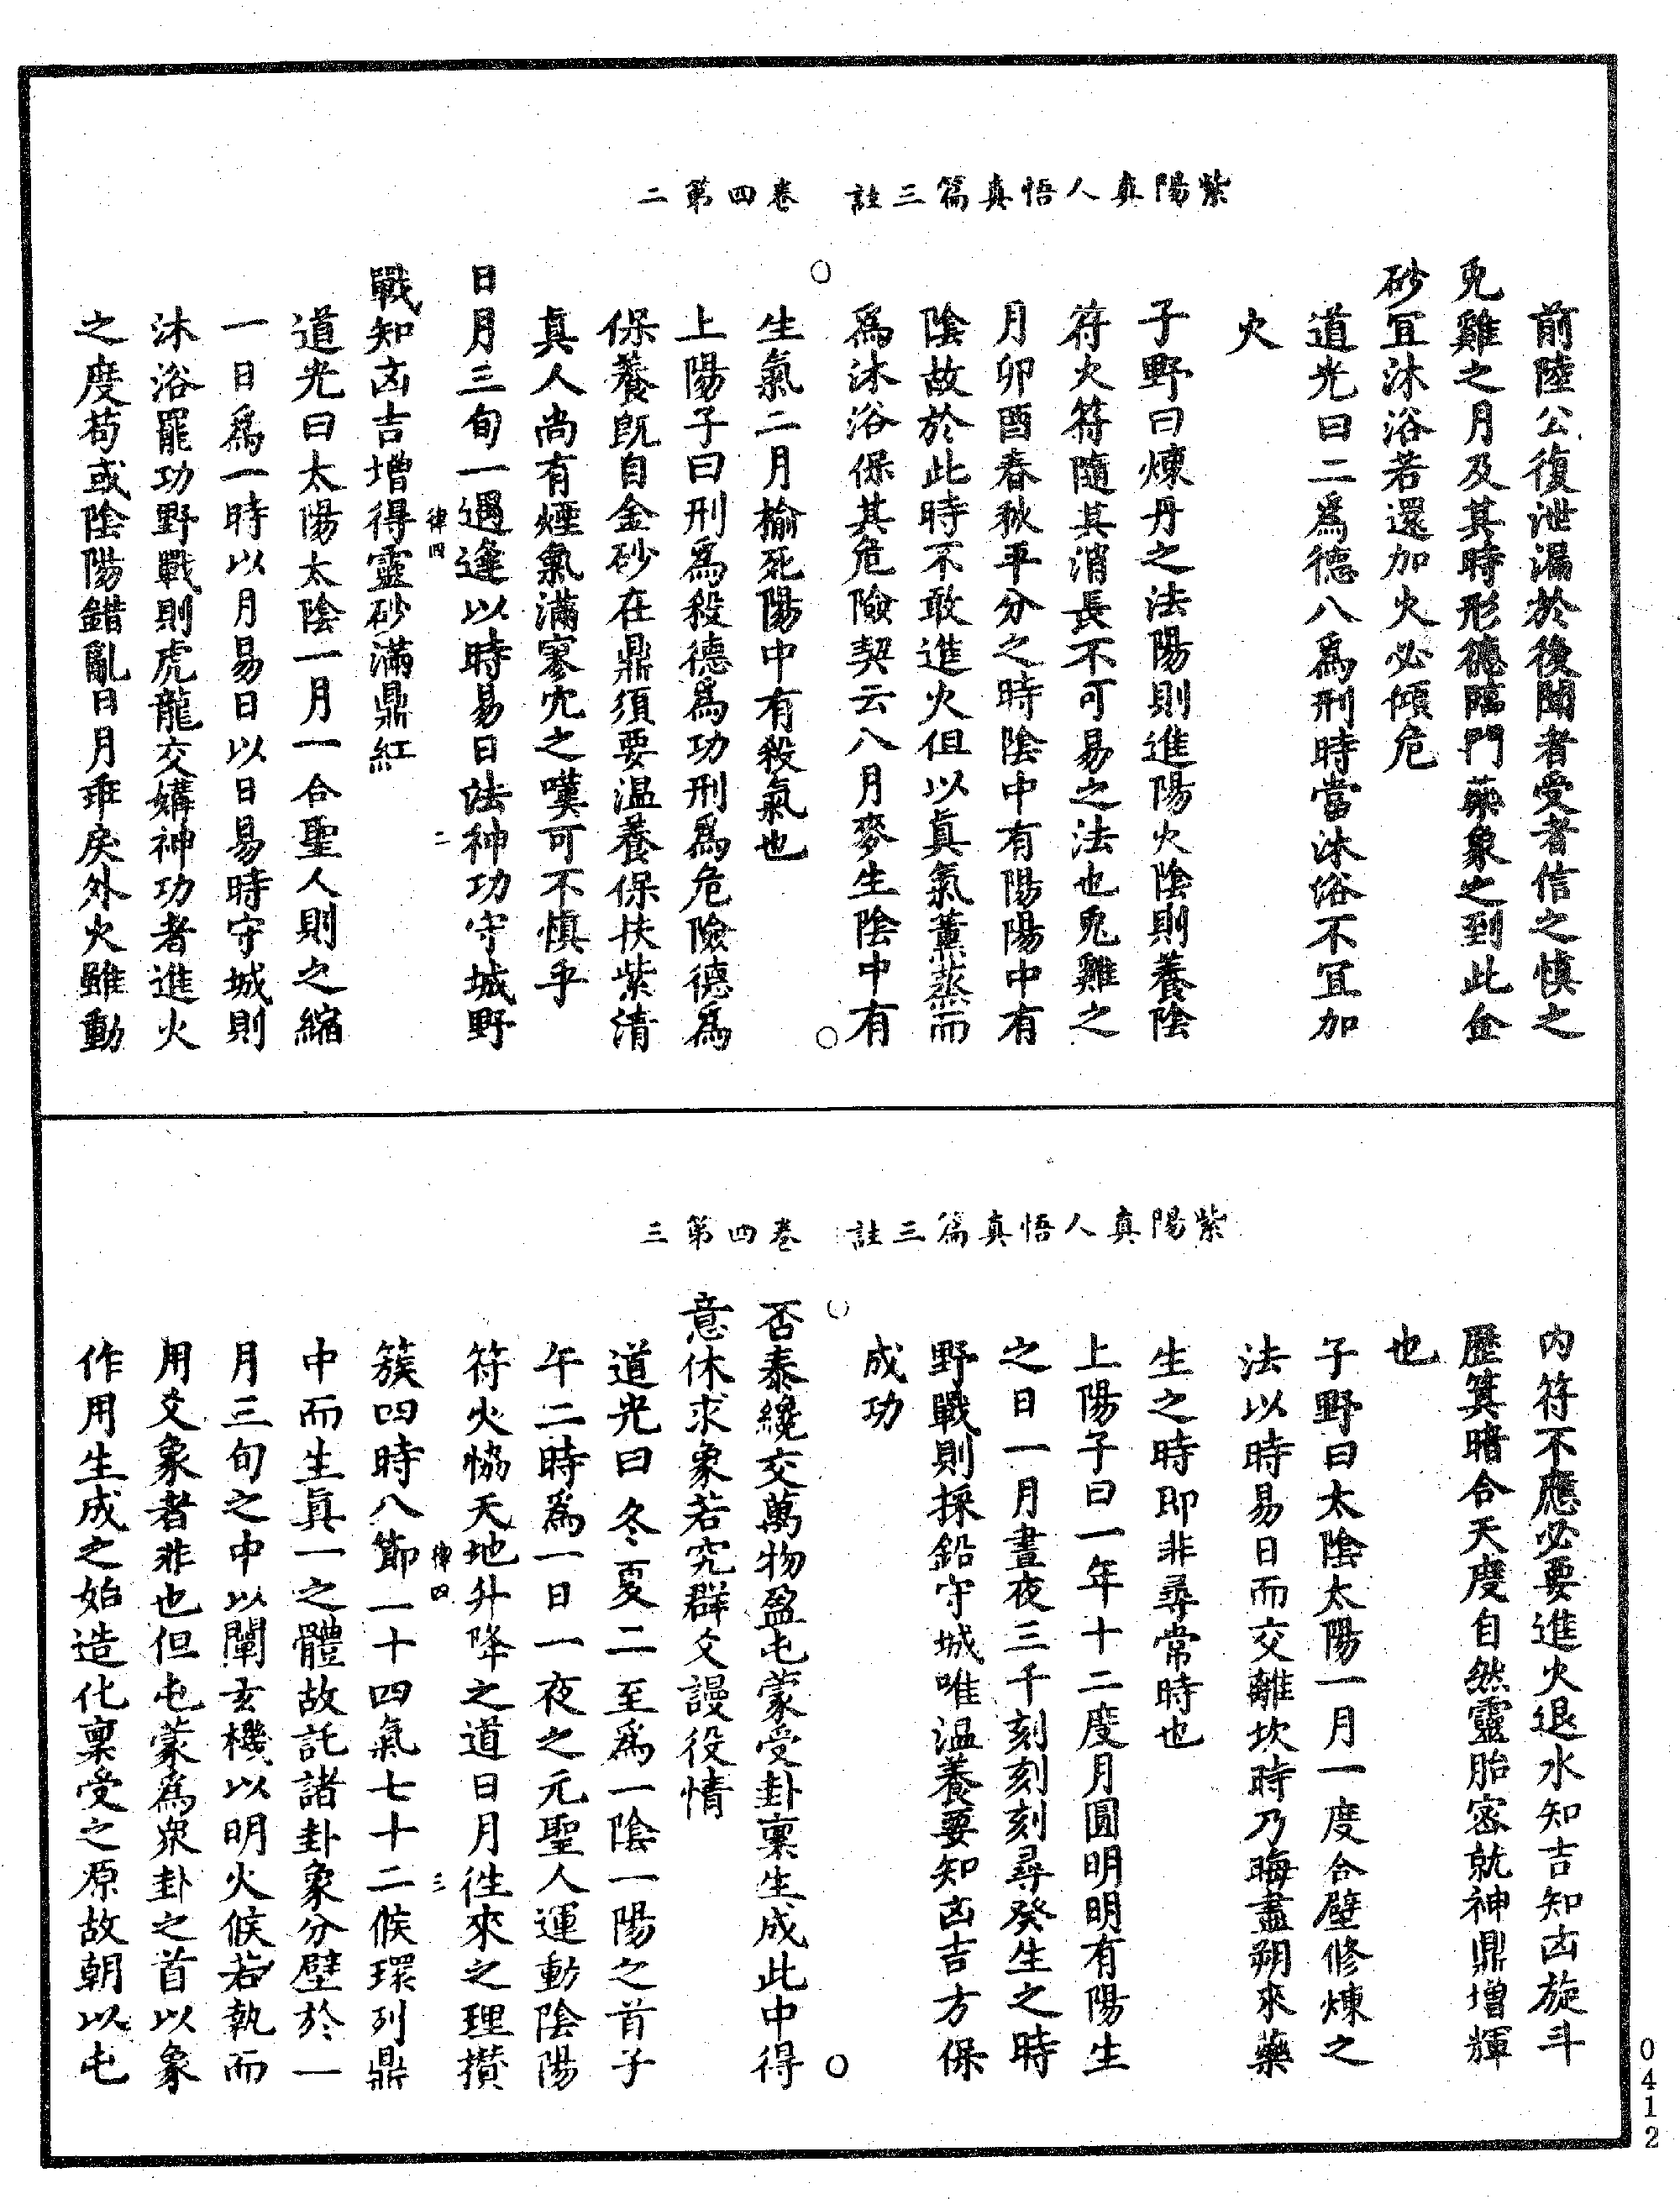 紫陽真人悟真篇三註　卷四第二
前陸公復泄漏於後聞者受者信之慎之
兎雞之月及其時形德臨門藥象之到此金
砂冝沐浴若還加火必傾危
道光曰二爲德八爲刑時當沐浴不冝加
火
子野曰煉丹之法陽則進陽火陰則養陰
符火符隨其消長不可易之法也兎雞之
月卯酉春秋平分之時陰中有陽陽中有
陰故於此時不敢進火但以真氣薰蒸而
爲沐浴保其危險契云八月麥生陰中有
生氣二月榆死陽中有殺氣也
上陽子曰刑爲殺德爲功刑爲危險德爲
保養旣自金砂在鼎須要温養保扶紫清
真人尚有煙氣滿寥泬之嘆可不慎乎
日月三旬一遇逢以時易日法神功守城野
律四　二
戰知凶吉增得靈砂滿鼎紅
道光曰太陽太陰一月一合聖人則之縮
一日爲一時以月易日以日易時守城則
沐浴罷功野戰則虎龍交媾神功者進火
之度苟或陰陽錯亂日月乖戾外火雖動
紫陽真人悟真篇三註　卷四第三
内符不應必要進火退水知吉知凶旋斗
歷箕暗合天度自然靈胎密就神鼎增輝
也
子野曰太陰太陽一月一度合璧修煉之
法以時易日而交離坎時乃晦盡朔來藥
生之時即非尋常時也
上陽子曰一年十二度月圓明明有陽生
之日一月晝夜三千刻刻刻尋癸生之時
野戰則採鉛守城唯温養要知凶吉方保
成功
否泰纔交萬物盈屯蒙受卦禀生成此中得
意休求象若究群爻謾役情
道光曰冬夏二至爲一陰一陽之首子
午二時爲一日一夜之元聖人運動陰陽
符火恊天地升降之道日月徃來之理攅
律四　三
簇四時八節二十四氣七十二候環列鼎
中而生真一之體故託諸卦象分壁於一
月三旬之中以闡玄機以明火候若執而
用爻象者非也但屯蒙爲衆卦之首以象
作用生成之始造化禀受之原故朝以屯
0412